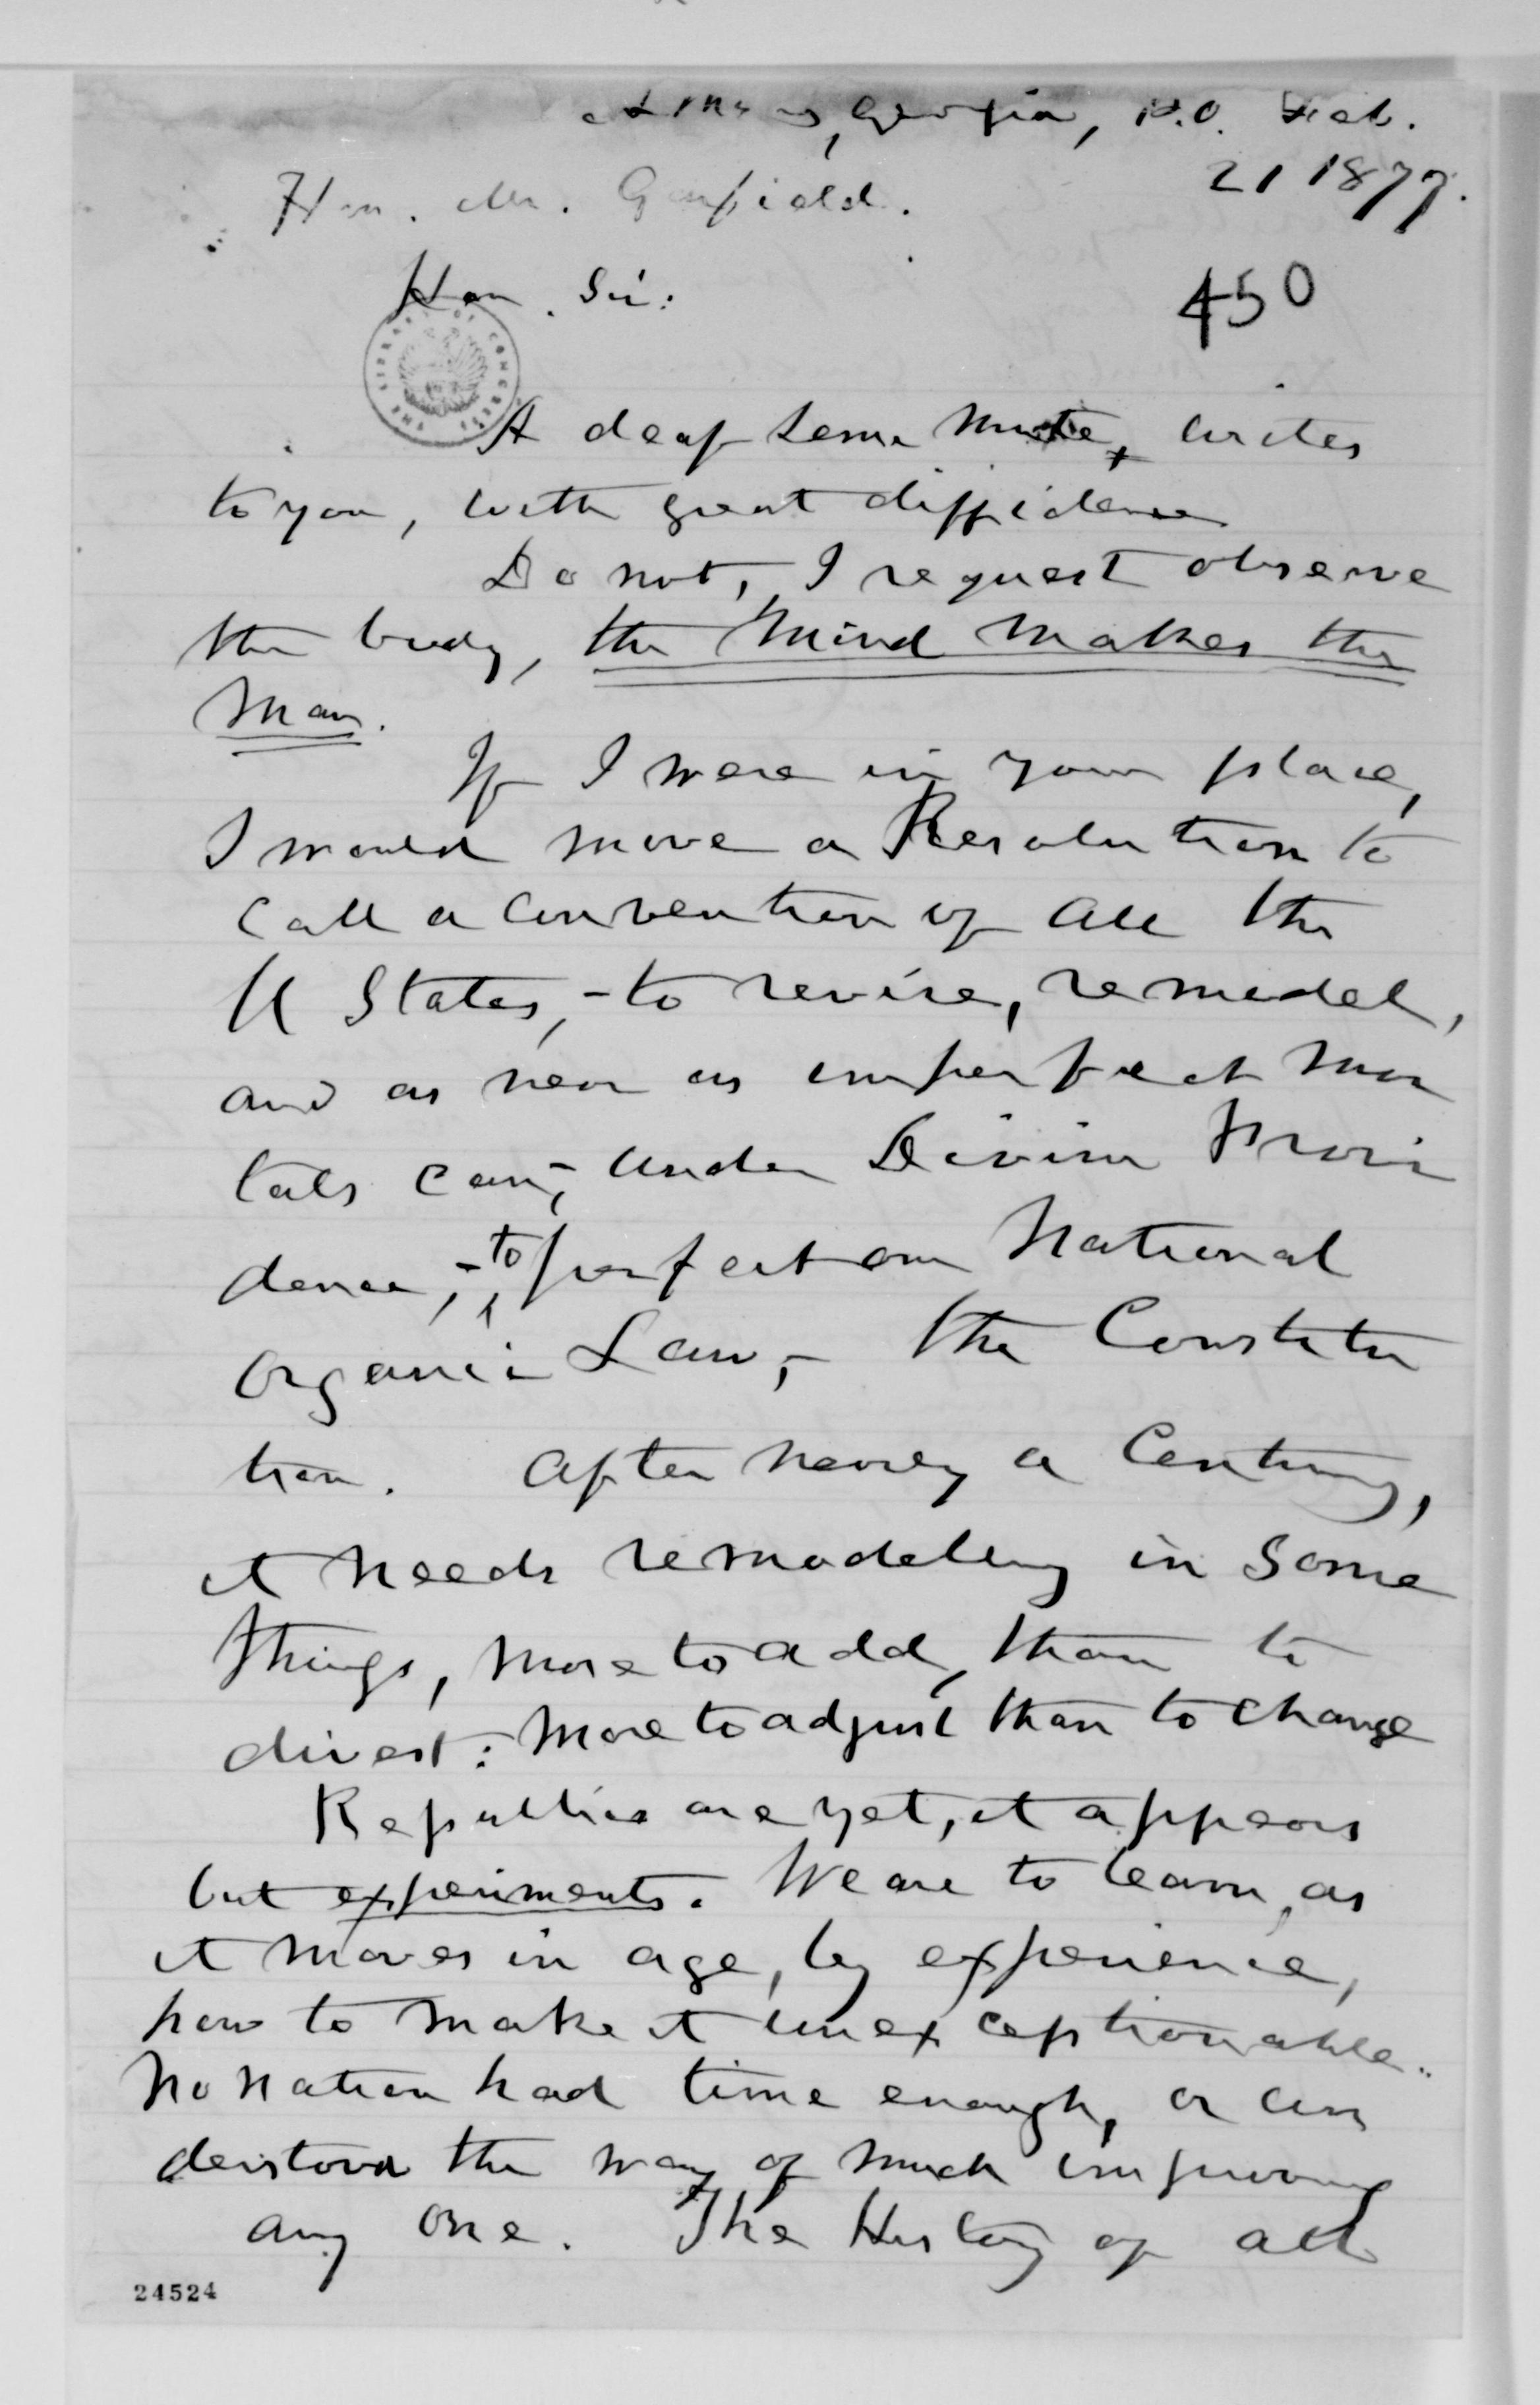 Georgia, P.O. Feb.
21 1877.
Hon. Mr. Garfield.
Hon. Sir:
450
THE LIBRARY OF CONGRESS
A deaf semi mute, writes
to you, with great diffidence
Do not, I request observe
the body, the Mind Makes the
Man.
If I were in your place,
I would move a Resolution to
Call a Convention of all the
U States, - to revise, remodel,
and as near as imperfect mor
tals can, - under Divine Provi
dence, - to perfect our National
Organic Law, - the Constitu
tion. After nearly a Century,
it needs remodeling in some
things, more to add, than to
divest: More to adjust than to change
Republics are yet, it appears
but experiments. We are to learn, as
it moves in age, by experience,
how to make it unexceptionable.
No nation had time enough, or un
derstood the way of much improving
any one. The History of all
24524